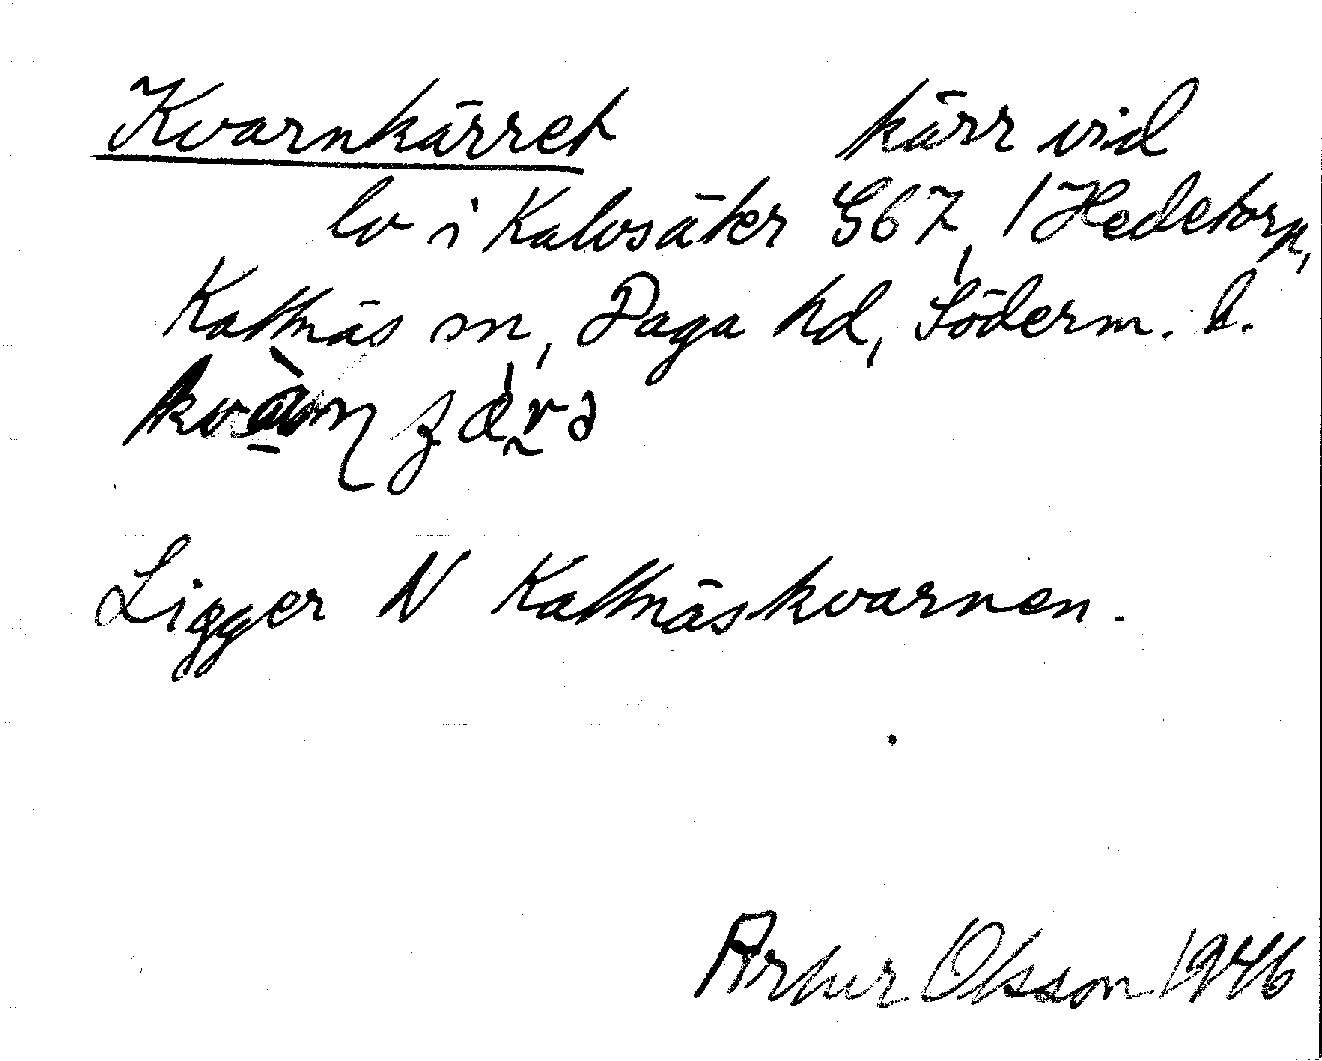 Kvarnkärret kärr vid
lv i Kalvsäker G67, 1 Hedetorp,
Kattnäs sn, Daga hd, Söderm. l.
Ligger N Kattnäskvarnen.
Artur Olsson 1946